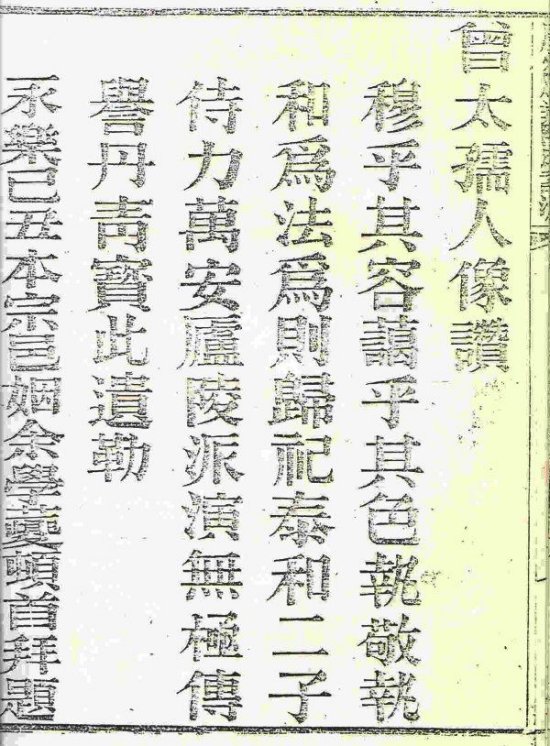 曾太孺人像讚
穆乎其容藹乎其色執敬執
和爲法爲則歸祀泰和二子
侍力萬安廬陵派演無極傳
譽丹青寶此遺勒
永樂己丑本宗邑姻余學夔頓首拜題